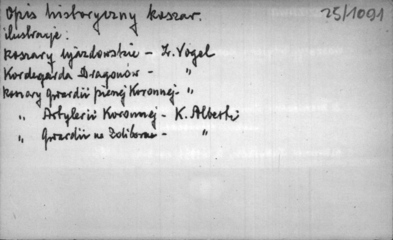 Opis historyczny koszar. 25/1091
ilustracje:
koszary ujazdowskie - Z. Vogel
Kordegarda Dragonów - "
koszary Gwardii pieszej Koronnej - "
" Artylerii Koronnej - K. Alberti
" Gwardii na Żoliborzu - "